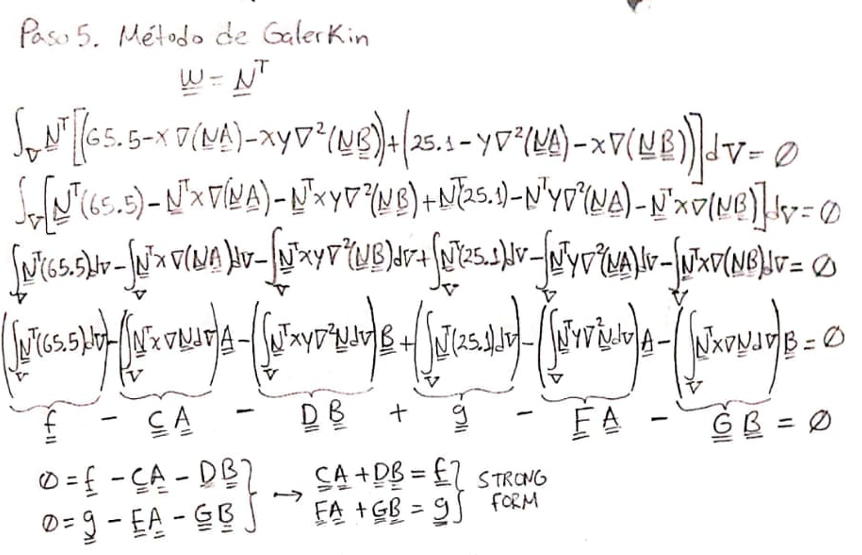 Paso 5. Método de Galerkin
W = Nᵀ
∫_V Nᵀ[(65.5-x∇(NA)-xy∇²(NB))+(25.1-y∇²(NA)-x∇(NB))]dV = ∅
∫_V [Nᵀ(65.5)-Nᵀx∇(NA)-Nᵀxy∇²(NB)+Nᵀ(25.1)-Nᵀy∇²(NA)-Nᵀx∇(NB)]dV = ∅
∫_V Nᵀ(65.5)dV-∫_V Nᵀx∇(NA)dV-∫_V Nᵀxy∇²(NB)dV+∫_V Nᵀ(25.1)dV-∫_V Nᵀy∇²(NA)dV-∫_V Nᵀx∇(NB)dV = ∅
(∫_V Nᵀ(65.5)dV)-(∫_V Nᵀx∇NdV)A-(∫_V Nᵀxy∇²NdV)B+(∫_V Nᵀ(25.1)dV)-(∫_V Nᵀy∇²NdV)A-(∫_V Nᵀx∇NdV)B = ∅
f - CA - DB + g - FA - GB = ∅
∅ = f - CA - DB } → CA + DB = f } STRONG
∅ = g - FA - GB } FA + GB = g } FORM